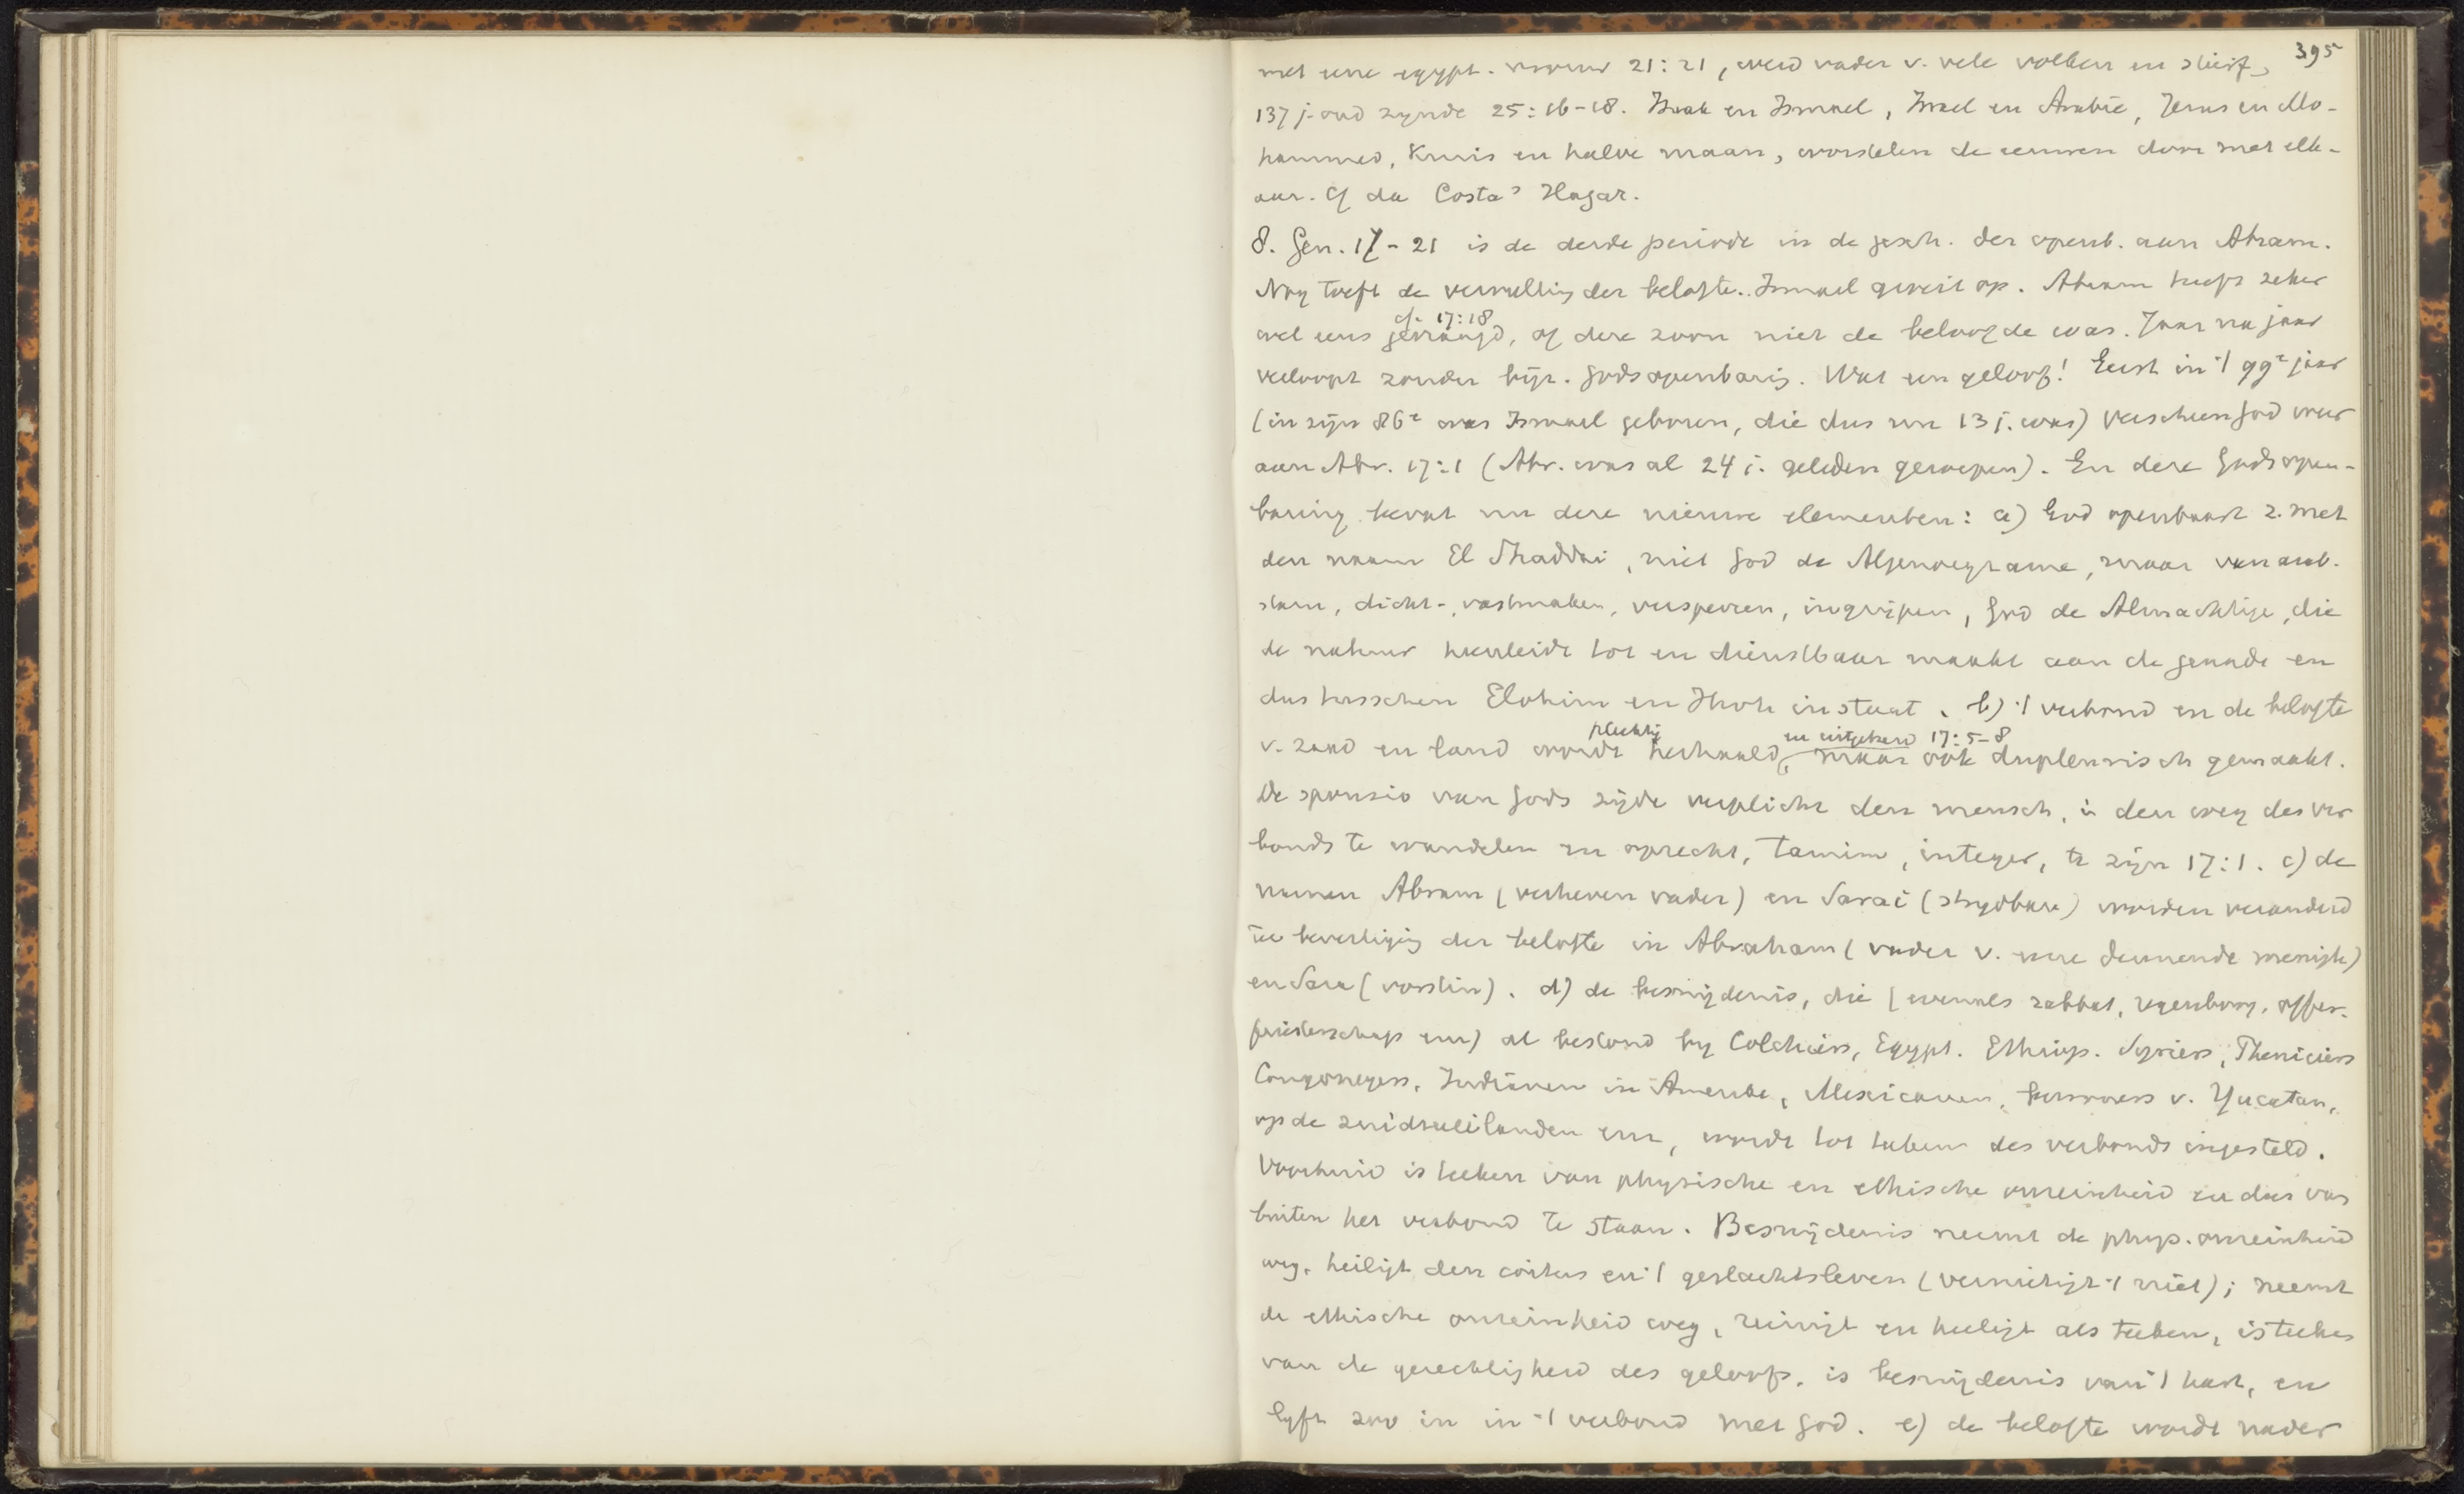 395
met eene egypt. vrouw 21:21, werd vader v. vele volken en stierf,
137 j. oud zynde 25:16-18. Izak en Ismael, Israel en Arabië, Jezus en Mo-
hammed, Kruis en halve maan, worstelen de eeuwen door met elk-
aar. Cf da Costa's Hagar.
8. Gen. 17-21 is de derde periode in de gesch. der openb. aan Abram.
Nog toeft de vervulling der belofte. Ismael groeit op. Abram heeft zeker
cf. 17:18
wel eens gevraagd, of deze zoon niet de beloofde was. Jaar na jaar
verloopt zonder bijz. Godsopenbaring. Wat een geloof! Eerst in 't 99e jaar
(in zijn 86e was Ismael geboren, die dus nu 13 j. was) verscheen God weer
aan Abr. 17:1 (Abr. was al 24 j. geleden geroepen). En deze Godsopen-
baring bevat nu deze nieuwe elementen: a) God openbaart z. met
den naam El Shaddai, niet God de Algenoegzame, maar van arab.
stam, dicht-, vastmaken, versperren, ingrijpen, God de Almachtige, die
de natuur heenleidt tot en dienstbaar maakt aan de genade en
dus tusschen Elohim en Jhvh instaat. b) 't verbond en de belofte
plechtig en uitgebreid 17:5-8
v. zaad en land wordt herhaald, maar ook dupleurisch gemaakt.
De sponsio van Gods zijde verplicht den mensch, in den weg des ver
bonds te wandelen en oprecht, tamim, integer, te zijn 17:1. c) de
namen Abram (verheven vader) en Sarai (strydbare) worden veranderd
ter bevestiging der belofte in Abraham (vader v. eene dreunende menigte)
en Sara (vorstin). d) de besnijdenis, die (evenals sabbat, regenboog, offer.
priesterschap enz) al bestond by Colchiers, Egypt. Ethiop. Syriers, Pheniciers
Congonegers, Indianen in Amerika, Mexicanen, bewoners v. Yucatan,
op de zuidzeeeilanden enz, wordt tot teeken des verbonds ingesteld.
Voorhuid is teeken van physische en ethische onreinheid en dus van
buiten het verbond te staan. Besnijdenis neemt de phys. onreinheid
weg, heiligt den coitus en 't geslachtsleven (vernietigt 't niet); neemt
de ethische onreinheid weg, reinigt en heiligt als teeken, is teeken
van de gerechtigheid des geloofs, is besnijdenis van 't hart, en
lyft zoo in in 't verbond met God. e) de belofte wordt nader